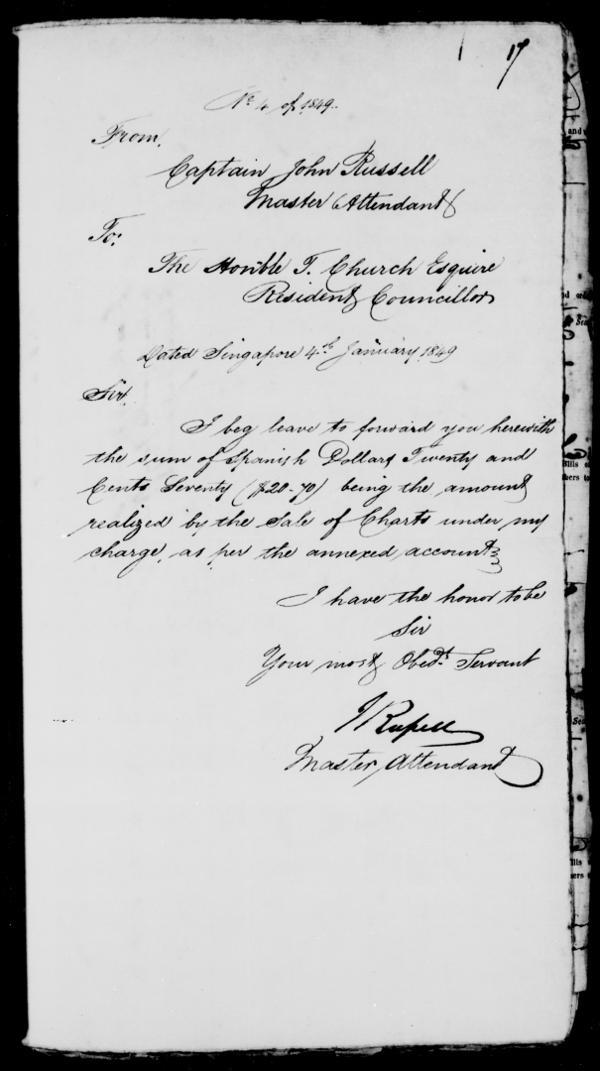 17
No 4 of 1849.
From,
Captain John Russell
Master Attendant
To:
The Honble T. Church Esquire
Resident Councillor
Dated Singapore 4th January 1849
Sir.
I beg leave to forward you herewith
the sum of Spanish Dollars Twenty and
Cents Seventy ($20-70) being the amount
realized by the Sale of Charts under my
charge, as per the annexed account
I have the honor to be
Sir
Your most Obedt. Servant
J Russell
Master Attendant